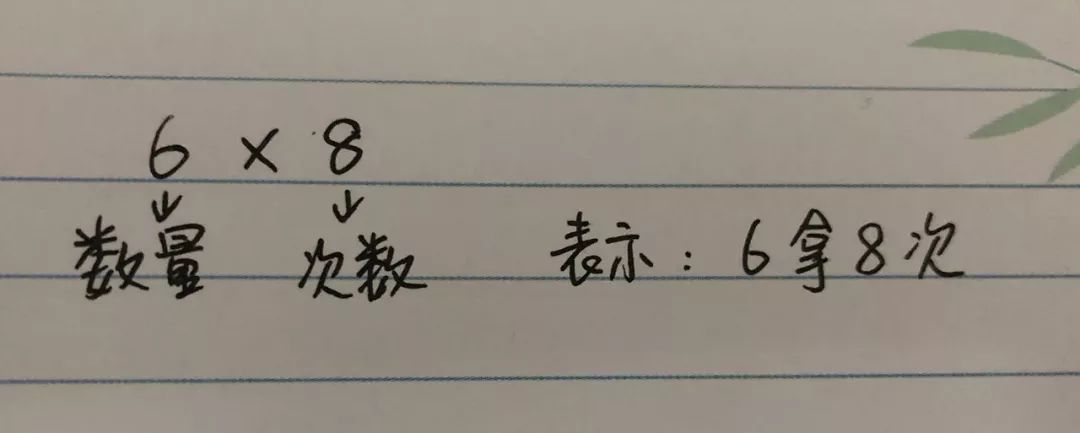 6 × 8
↓ ↓
数量 次数 表示：6拿8次